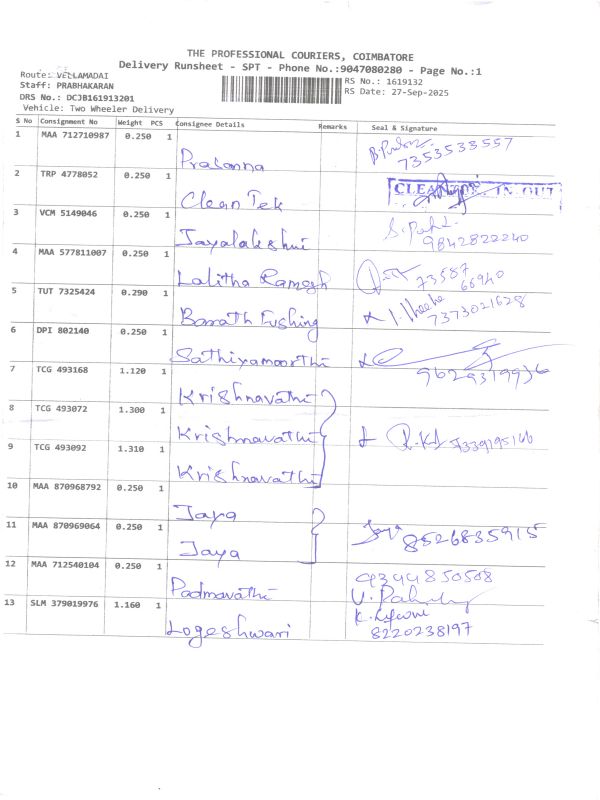 THE PROFESSIONAL COURIERS, COIMBATORE
Delivery Runsheet - SPT - Phone No.:9047080280 - Page No.:1
Route: VELLAMADAI
RS No.: 1619132
Staff: PRABHAKARAN
RS Date: 27-Sep-2025
DRS No.: DCJB161913201
Vehicle: Two Wheeler Delivery
S No Consignment No Weight PCS Consignee Details Remarks Seal & Signature
1 MAA 712710987 0.250 1 Prasanna 7353533557
2 TRP 4778052 0.250 1 Clean Tek CLEAN IN OUT
3 VCM 5149046 0.250 1 Jayalakshmi 9842822240
4 MAA 577811007 0.250 1 Lalitha Ramesh 73587 66940
5 TUT 7325424 0.290 1 Barath Fushing 7373021628
6 DPI 802140 0.250 1 Sathiyamoorthi 9629319936
7 TCG 493168 1.120 1 Krishnavathi
8 TCG 493072 1.300 1 Krishnavathi 7339195166
9 TCG 493092 1.310 1 Krishnavathi
10 MAA 870968792 0.250 1 Jaya
11 MAA 870969064 0.250 1 Jaya Jaya 8526835915
12 MAA 712540104 0.250 1 Padmavathi 9344850508
13 SLM 379019976 1.160 1 Logeshwari 8220238197